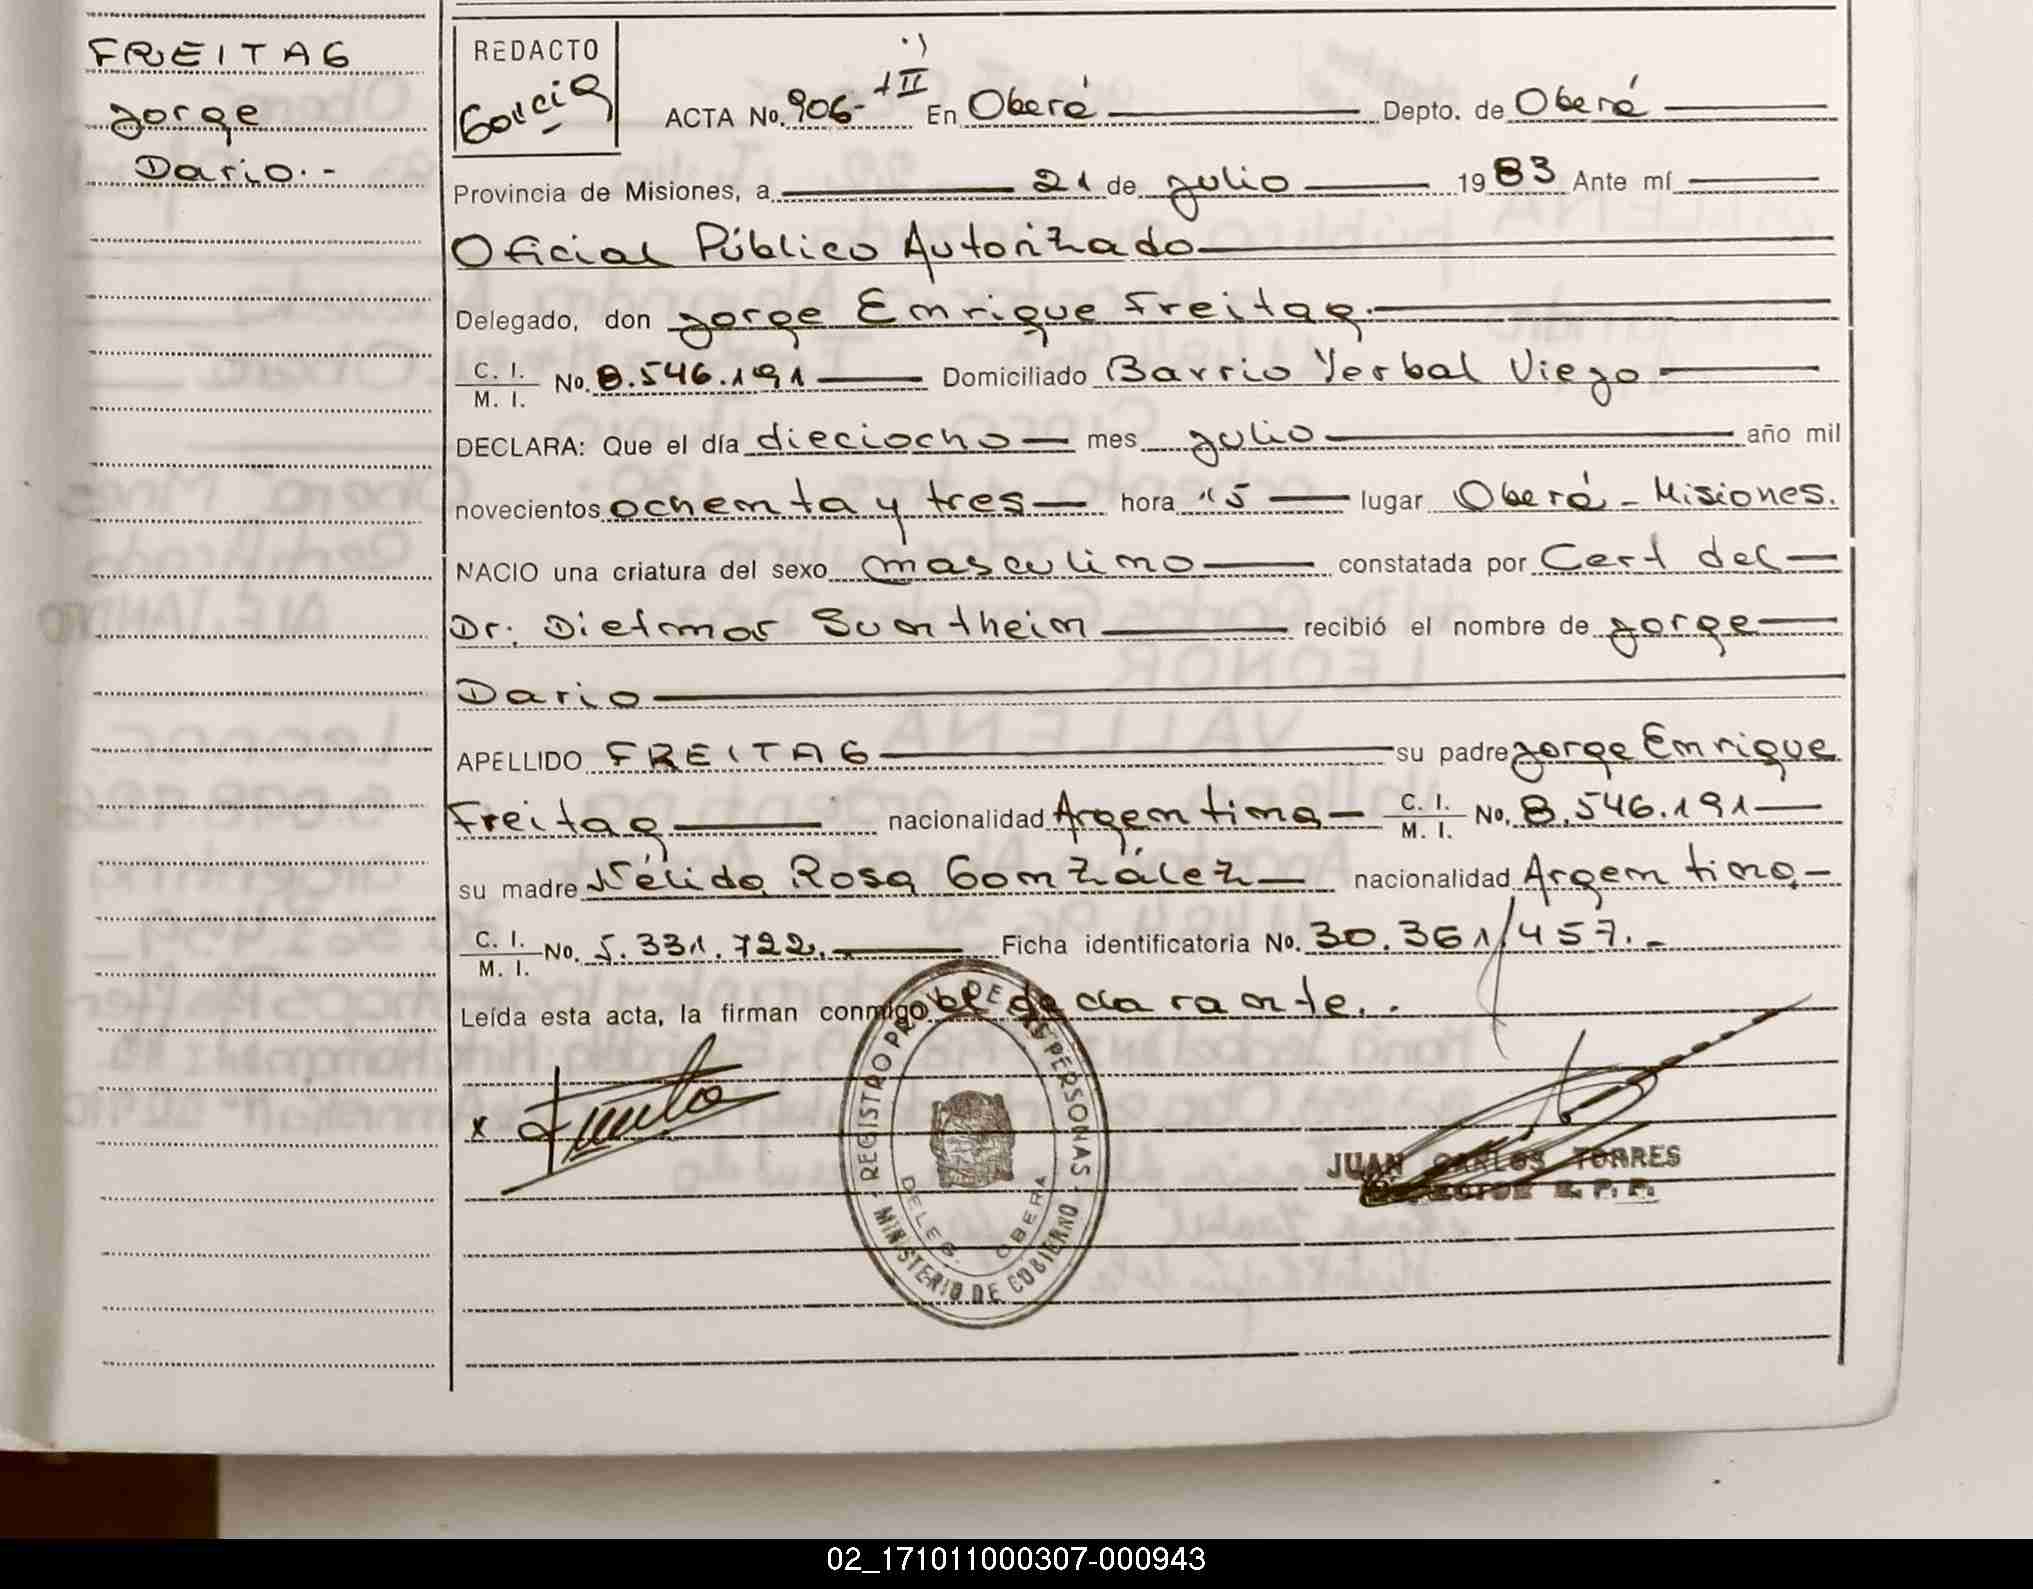 FREITAG
Jorge
Dario.-
REDACTO
Garcia
ACTA No. 906- +II En Oberá Depto. de Oberá
Provincia de Misiones, a 21 de Julio 1983 Ante mí
Oficial Público Autorizado
Delegado, don Jorge Enrique Freitag.
C. I. / M. I. No. 8.546.191 Domiciliado Barrio Yerbal Viejo
DECLARA: Que el día dieciocho mes Julio año mil
novecientos ochenta y tres hora 15 lugar Oberá - Misiones.
NACIO una criatura del sexo masculino constatada por Cert del
Dr. Dietmar Suntheim recibió el nombre de Jorge
Dario
APELLIDO FREITAG su padre Jorge Enrique
Freitag nacionalidad Argentina C. I. / M. I. No. 8.546.191
su madre Nélida Rosa González nacionalidad Argentina
C. I. / M. I. No. 5.331.722. Ficha identificatoria No. 30.361/457.-
Leída esta acta, la firman conmigo el declarante..
x
REGISTRO PROV. DE LAS PERSONAS
MINISTERIO DE GOBIERNO
DELEG. OBERA
JUAN CARLOS TORRES
R. P. P.
02_171011000307-000943